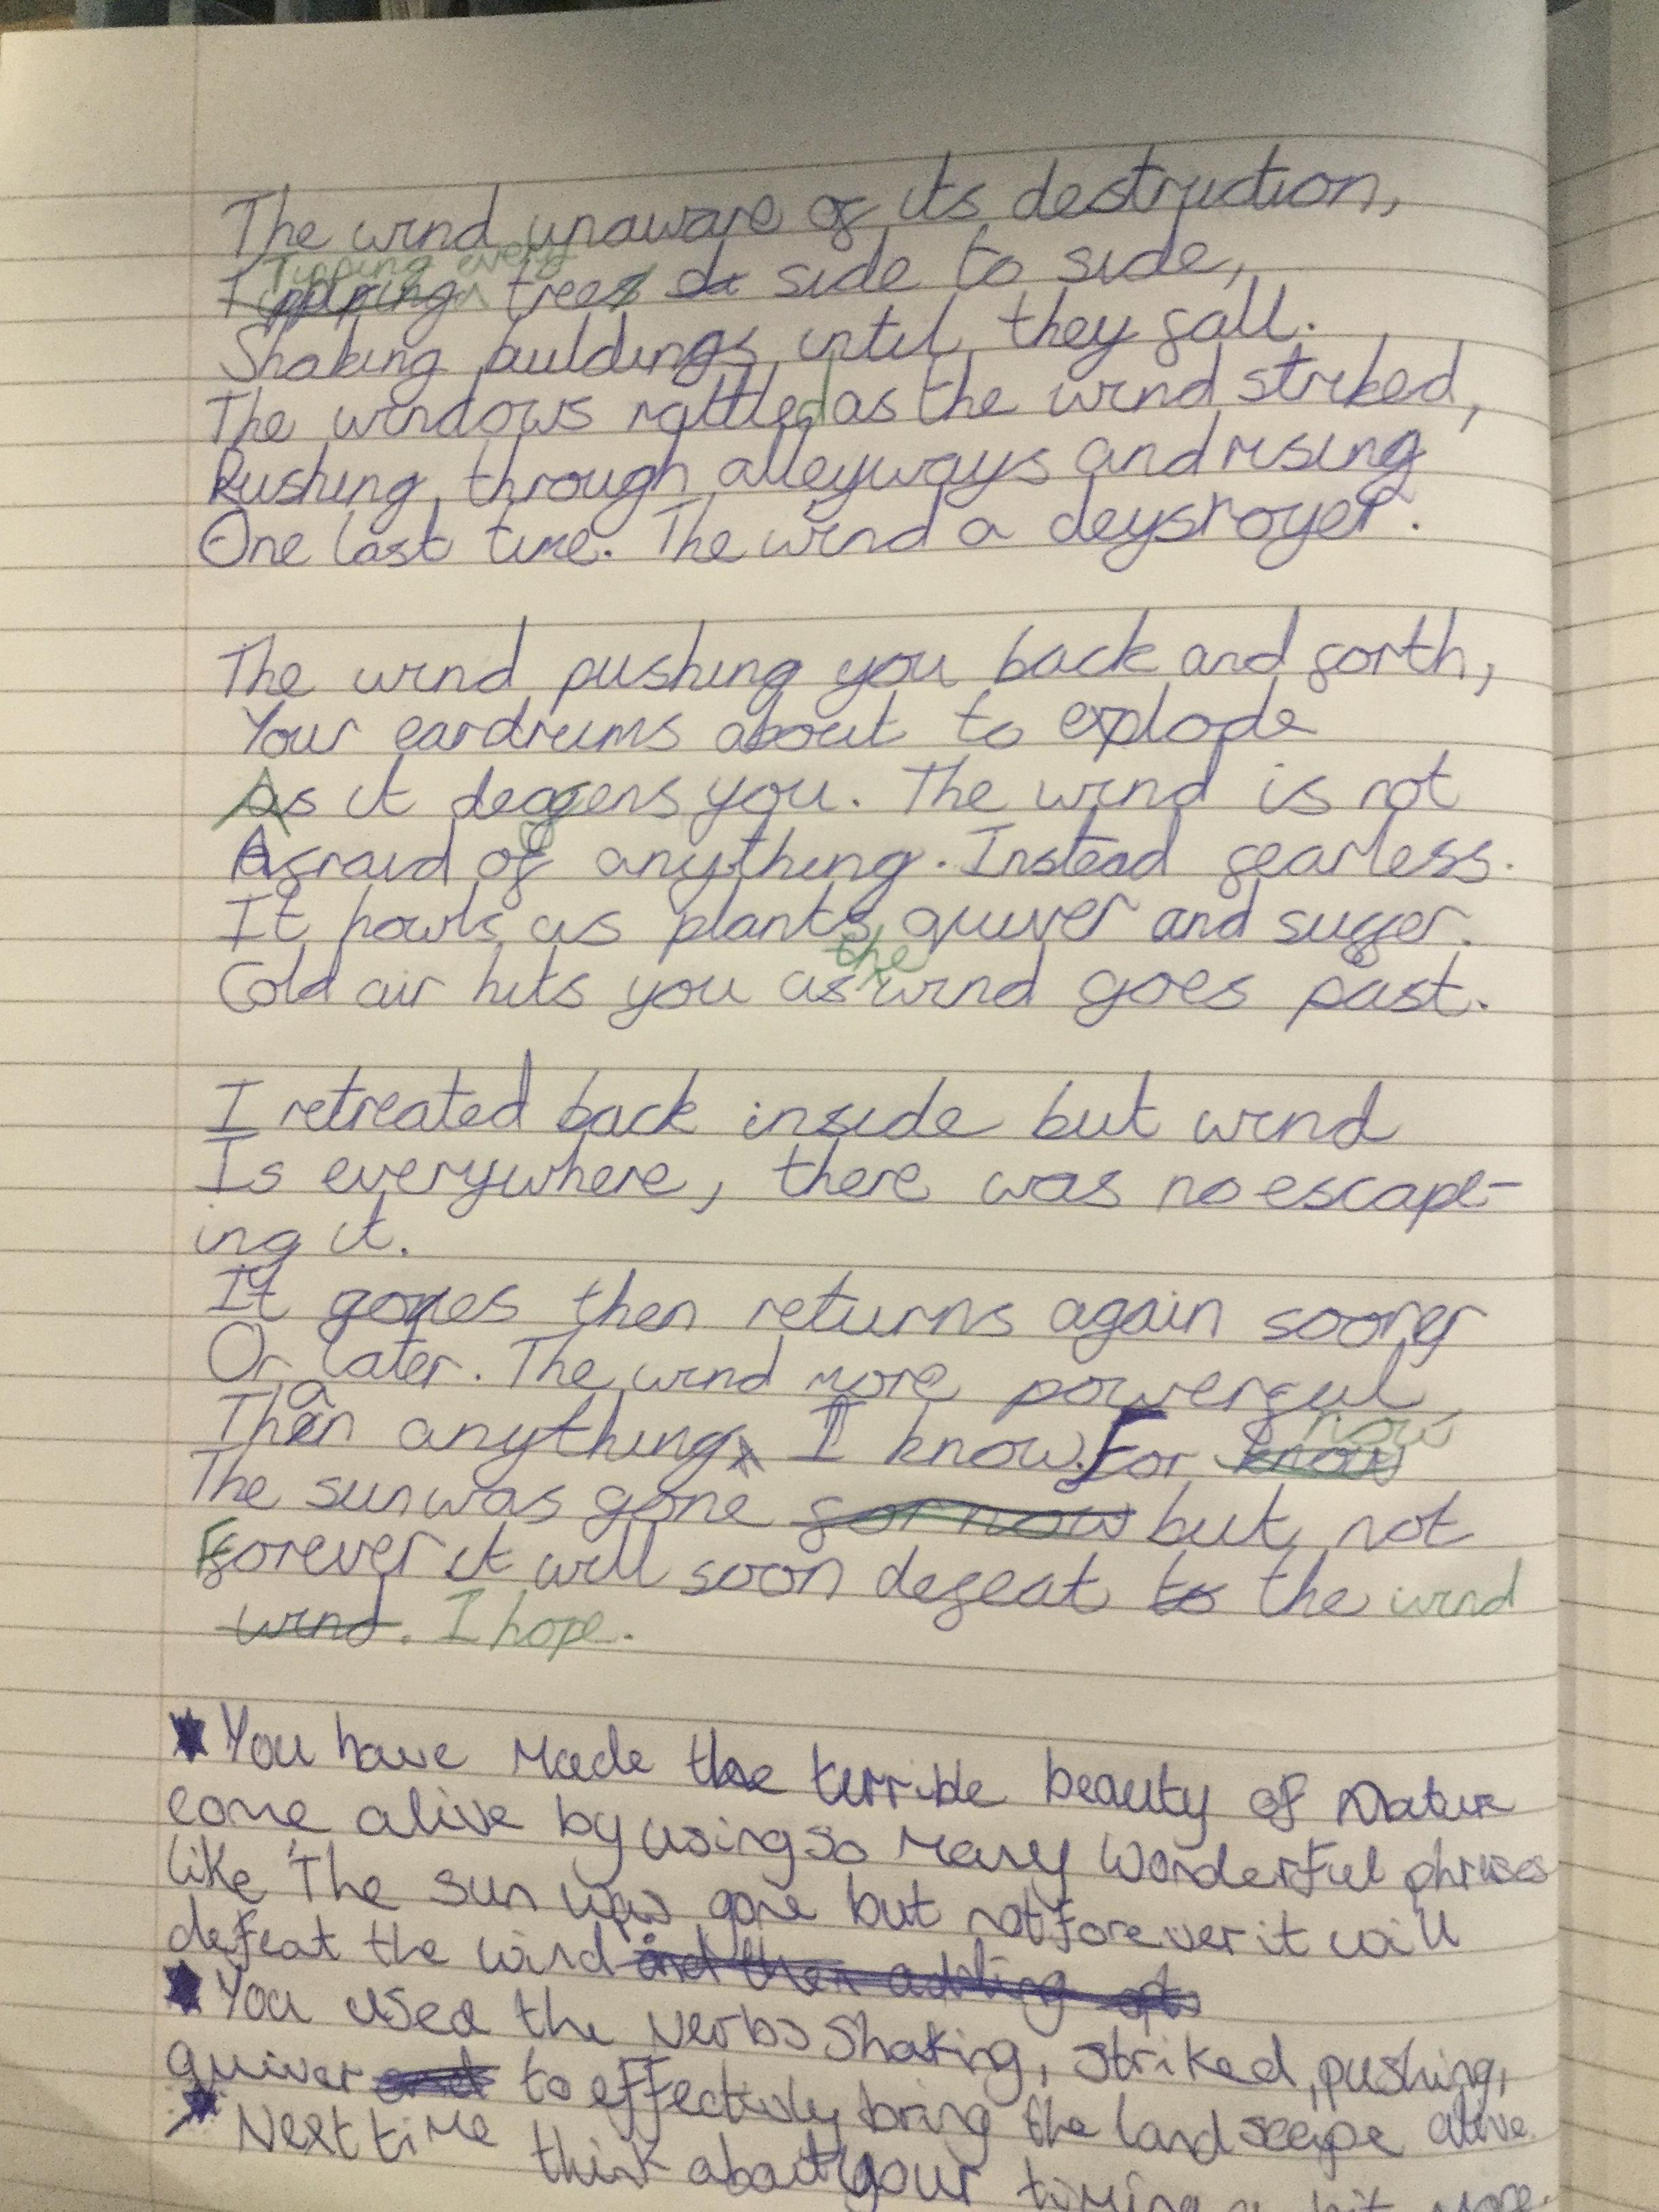 The wind unaware of its destruction,
Tipping every
Tipping trees side to side,
Shaking buildings until they fall.
The windows rattled as the wind striked,
Rushing through alleyways and rising
One last time. The wind a deystroyer.
The wind pushing you back and forth,
Your eardrums about to explode
As it deafens you. The wind is not
Afraid of anything. Instead fearless.
It howls as plants quiver and suffer.
the
Cold air hits you as wind goes past.
I retreated back inside but wind
Is everywhere, there was no escape-
ing it.
It goes then returns again sooner
Or later. The wind more powerful
Than anything, I know. For know now
The sun was gone for now but not
Forever it will soon defeat to the wind
wind. I hope.
You have made the terrible beauty of Nature
come alive by using so many wonderful phrases
like 'The sun was gone but not forever it will
defeat the wind and then adding
You used the verbs Shaking, striked, pushing,
quiver and to effectivly bring the landscape alive.
Next time think about your timing a bit more.